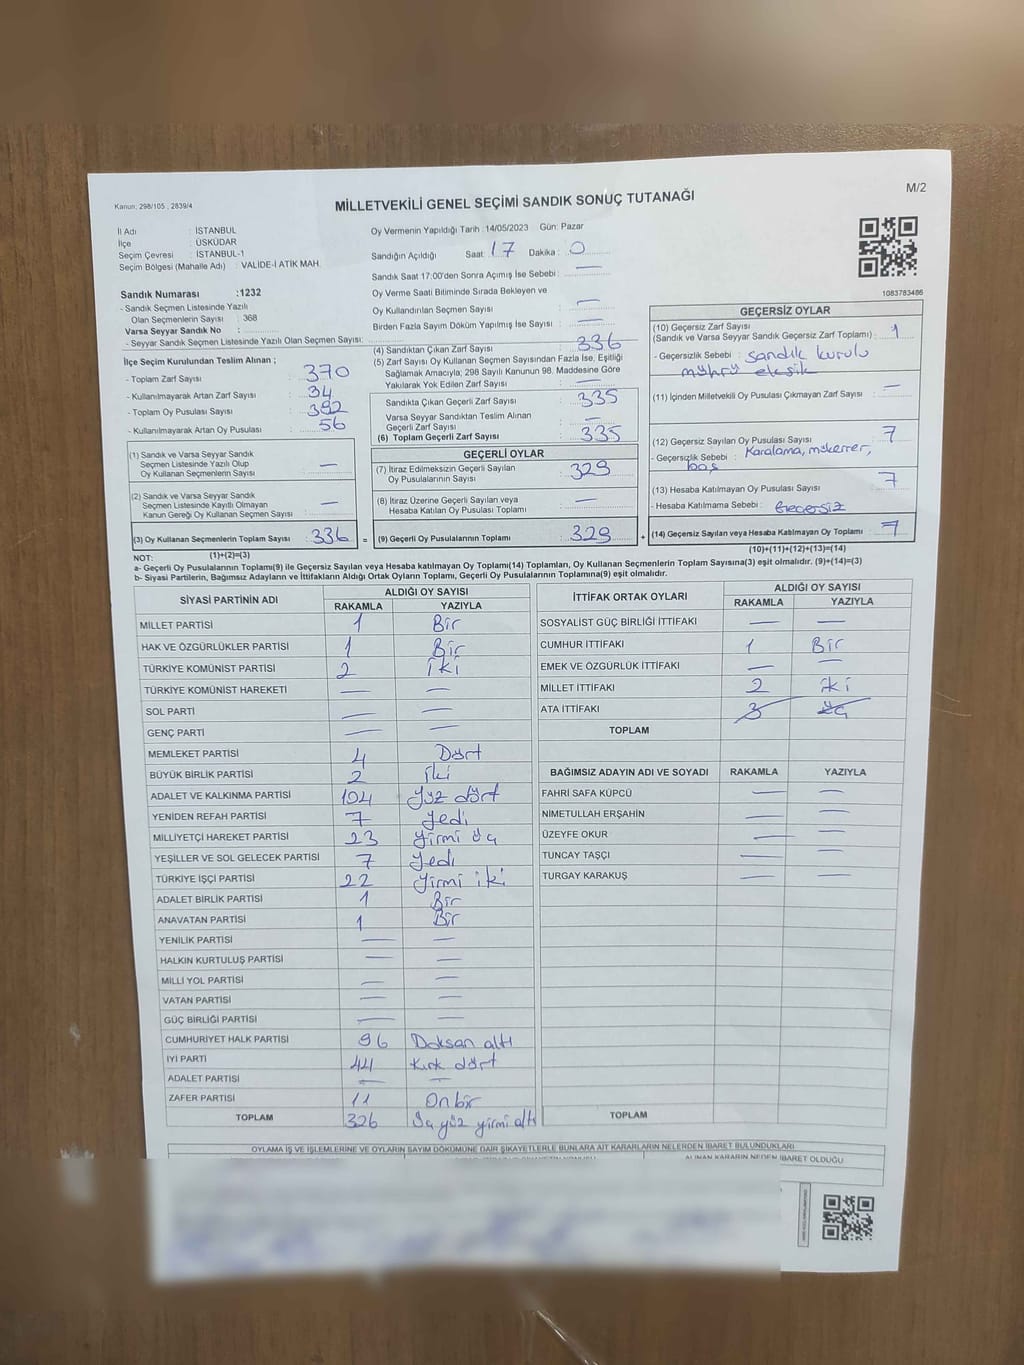 Kanun; 298/105 , 2839/4
MİLLETVEKİLİ GENEL SEÇİMİ SANDIK SONUÇ TUTANAĞI
M/2
İl Adı : İSTANBUL
İlçe : ÜSKÜDAR
Seçim Çevresi : İSTANBUL-1
Seçim Bölgesi (Mahalle Adı) : VALİDE-İ ATİK MAH.
Oy Vermenin Yapıldığı Tarih : 14/05/2023 Gün: Pazar
Sandığın Açıldığı Saat: 17 Dakika : 0
Sandık Saat 17:00'den Sonra Açımış İse Sebebi : —
Oy Verme Saati Bitiminde Sırada Bekleyen ve
Oy Kullandırılan Seçmen Sayısı : —
Birden Fazla Sayım Döküm Yapılmış İse Sayısı : —
1083783486
Sandık Numarası :1232
- Sandık Seçmen Listesinde Yazılı
Olan Seçmenlerin Sayısı : 368
Varsa Seyyar Sandık No :
- Seyyar Sandık Seçmen Listesinde Yazılı Olan Seçmen Sayısı:
İlçe Seçim Kurulundan Teslim Alınan ;
- Toplam Zarf Sayısı : 370
- Kullanılmayarak Artan Zarf Sayısı : 34
- Toplam Oy Pusulası Sayısı : 392
- Kullanılmayarak Artan Oy Pusulası : 56
(1) Sandık ve Varsa Seyyar Sandık
Seçmen Listesinde Yazılı Olup
Oy Kullanan Seçmenlerin Sayısı : —
(2) Sandık ve Varsa Seyyar Sandık
Seçmen Listesinde Kayıtlı Olmayan
Kanun Gereği Oy Kullanan Seçmen Sayısı : —
(3) Oy Kullanan Seçmenlerin Toplam Sayısı : 336
(1)+(2)=(3)
(4) Sandıktan Çıkan Zarf Sayısı : 336
(5) Zarf Sayısı Oy Kullanan Seçmen Sayısından Fazla İse, Eşitliği
Sağlamak Amacıyla; 298 Sayılı Kanunun 98. Maddesine Göre
Yakılarak Yok Edilen Zarf Sayısı : —
Sandıkta Çıkan Geçerli Zarf Sayısı : 335
Varsa Seyyar Sandıktan Teslim Alınan
Geçerli Zarf Sayısı : —
(6) Toplam Geçerli Zarf Sayısı : 335
GEÇERLİ OYLAR
(7) İtiraz Edilmeksizin Geçerli Sayılan
Oy Pusulalarının Sayısı : 329
(8) İtiraz Üzerine Geçerli Sayılan veya
Hesaba Katılan Oy Pusulası Toplamı : —
= (9) Geçerli Oy Pusulalarının Toplamı : 329
GEÇERSİZ OYLAR
(10) Geçersiz Zarf Sayısı
(Sandık ve Varsa Seyyar Sandık Geçersiz Zarf Toplamı) : 1
- Geçersizlik Sebebi : sandık kurulu
mührü eksik
(11) İçinden Milletvekili Oy Pusulası Çıkmayan Zarf Sayısı : —
(12) Geçersiz Sayılan Oy Pusulası Sayısı : 7
- Geçersizlik Sebebi : Karalama, mükerrer,
boş
(13) Hesaba Katılmayan Oy Pusulası Sayısı : 7
- Hesaba Katılmama Sebebi : Geçersiz
+ (14) Geçersiz Sayılan veya Hesaba Katılmayan Oy Toplamı : 7
(10)+(11)+(12)+(13)=(14)
NOT:
a- Geçerli Oy Pusulalarının Toplamı(9) ile Geçersiz Sayılan veya Hesaba Katılmayan Oy Toplamı(14) Toplamları, Oy Kullanan Seçmenlerin Toplam Sayısına(3) eşit olmalıdır. (9)+(14)=(3)
b- Siyasi Partilerin, Bağımsız Adayların ve İttifakların Aldığı Ortak Oyların Toplamı, Geçerli Oy Pusulalarının Toplamına(9) eşit olmalıdır.
SİYASİ PARTİNİN ADI ALDIĞI OY SAYISI
RAKAMLA YAZIYLA
MİLLET PARTİSİ 1 Bir
HAK VE ÖZGÜRLÜKLER PARTİSİ 1 Bir
TÜRKİYE KOMÜNİST PARTİSİ 2 iki
TÜRKİYE KOMÜNİST HAREKETİ — —
SOL PARTİ — —
GENÇ PARTİ — —
MEMLEKET PARTİSİ 4 Dört
BÜYÜK BİRLİK PARTİSİ 2 İki
ADALET VE KALKINMA PARTİSİ 104 Yüz dört
YENİDEN REFAH PARTİSİ 7 Yedi
MİLLİYETÇİ HAREKET PARTİSİ 23 Yirmi üç
YEŞİLLER VE SOL GELECEK PARTİSİ 7 Yedi
TÜRKİYE İŞÇİ PARTİSİ 22 Yirmi iki
ADALET BİRLİK PARTİSİ 1 Bir
ANAVATAN PARTİSİ 1 Bir
YENİLİK PARTİSİ — —
HALKIN KURTULUŞ PARTİSİ — —
MİLLİ YOL PARTİSİ — —
VATAN PARTİSİ — —
GÜÇ BİRLİĞİ PARTİSİ — —
CUMHURİYET HALK PARTİSİ 96 Doksan altı
İYİ PARTİ 44 Kırk dört
ADALET PARTİSİ — —
ZAFER PARTİSİ 11 On bir
TOPLAM 326 Üç yüz yirmi altı
İTTİFAK ORTAK OYLARI ALDIĞI OY SAYISI
RAKAMLA YAZIYLA
SOSYALİST GÜÇ BİRLİĞİ İTTİFAKI — —
CUMHUR İTTİFAKI 1 Bir
EMEK VE ÖZGÜRLÜK İTTİFAKI — —
MİLLET İTTİFAKI 2 iki
ATA İTTİFAKI 3 üç
TOPLAM
BAĞIMSIZ ADAYIN ADI VE SOYADI RAKAMLA YAZIYLA
FAHRİ SAFA KÜPCÜ — —
NİMETULLAH ERŞAHİN — —
ÜZEYFE OKUR — —
TUNCAY TAŞÇI — —
TURGAY KARAKUŞ — —
TOPLAM
OYLAMA İŞ VE İŞLEMLERİNE VE OYLARIN SAYIM DÖKÜMÜNE DAİR ŞİKAYETLERLE BUNLARA AİT KARARLARIN NELERDEN İBARET BULUNDUKLARI
ALINAN KARARIN NEDEN İBARET OLDUĞU